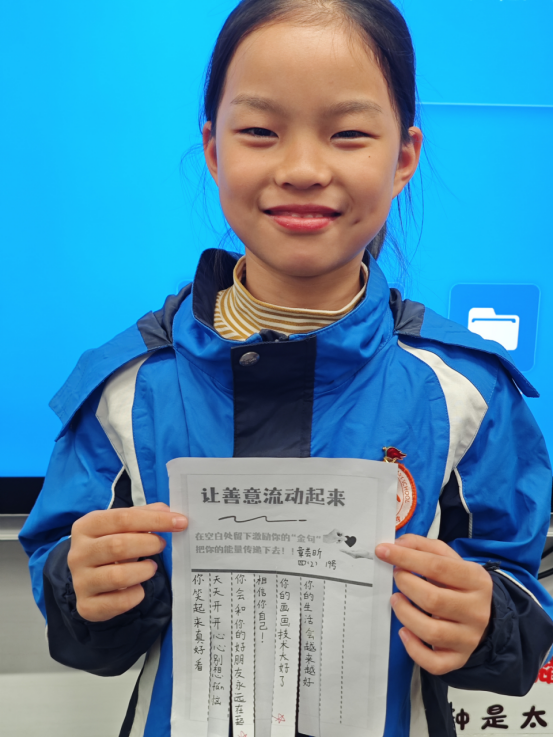 让善意流动起来
在空白处留下激励你的“金句”
把你的能量传递下去！！
四·2） 19号
你笑起来真好看
天天开开心心别想烦恼
你会和你的好朋友永远在一
相信你自己！
你的画画技术太好了
你的生活会越来越好
种是太